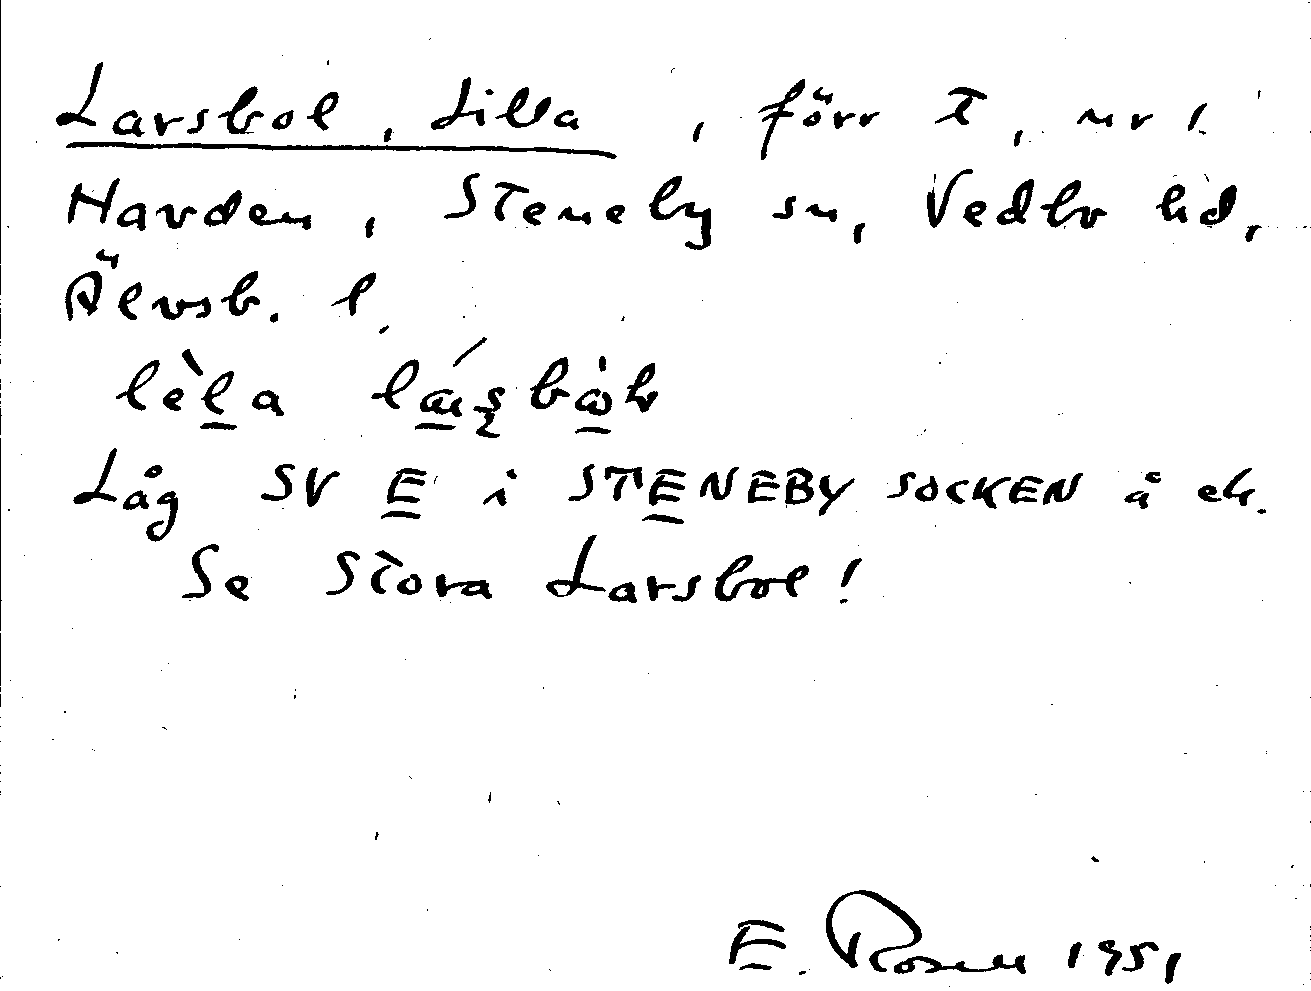 Larsbol, Lilla, förr T, nr 1
Harden, Steneby sn, Vedbo hd,
Älvsb. l.
lèla
Låg SV E i STENEBY SOCKEN å ek.
Se Stora Larsbol!
E. Rosell 1951